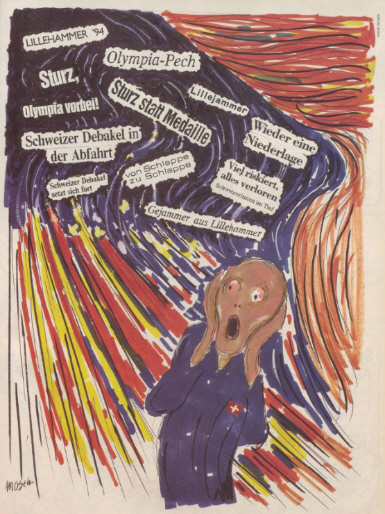 LILLEHAMMER '94
Olympia-Pech
Sturz,
Olympia vorbei!
Sturz statt Medaille
Lillejammer
Wieder eine
Niederlage
Schweizer Debakel in
der Abfahrt
von Schlappe
zu Schlappe
Viel riskiert,
alles verloren
Schweizerinnen im Tief
Schweizer Debakel
setzt sich fort
Gejammer aus Lillehammer
MOSER